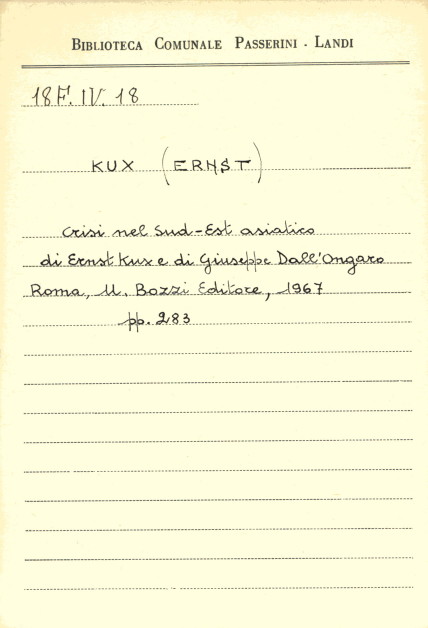 BIBLIOTECA COMUNALE PASSERINI - LANDI
18 F. IV. 18
KUX (ERNST)
Crisi nel Sud-Est asiatico
di Ernst Kux e di Giuseppe Dall'Ongaro
Roma, U. Bozzi Editore, 1967
pp. 283